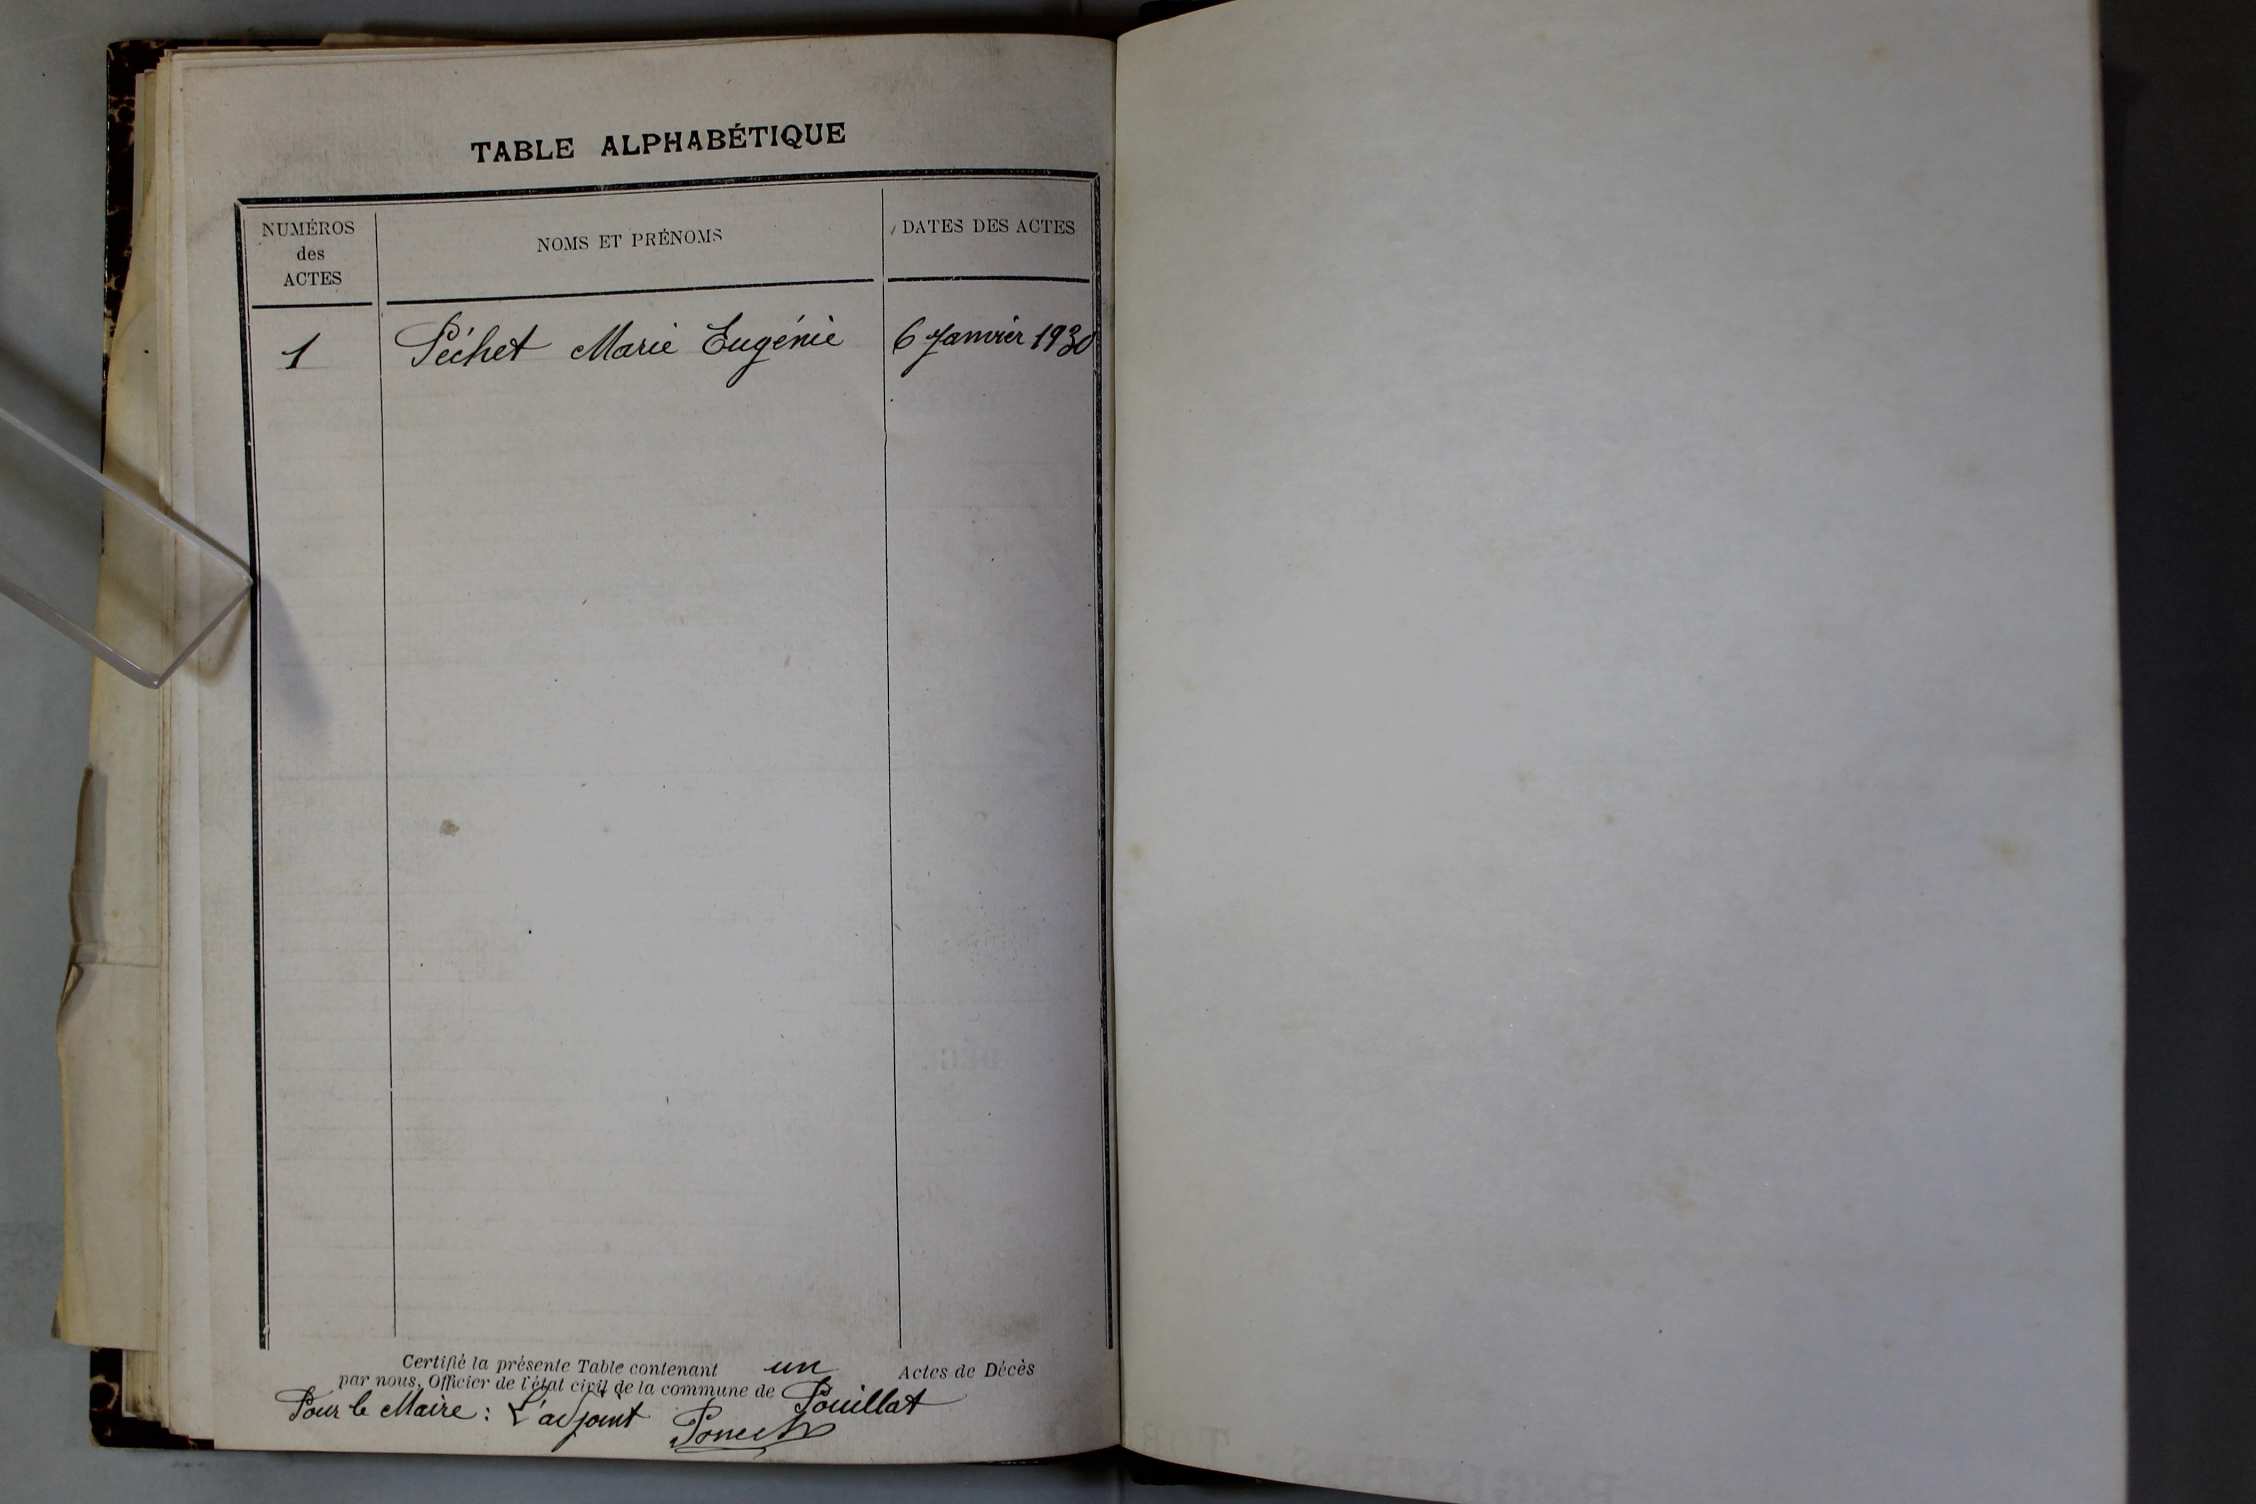 TABLE ALPHABÉTIQUE
NUMÉROS
des
ACTES
NOMS ET PRÉNOMS
DATES DES ACTES
1 Péchet Marie Eugénie 6 Janvier 1930
Certifié la présente Table contenant un Actes de Décès
par nous, Officier de l'état civil de la commune de Pouillat
Pour le Maire : L'adjoint